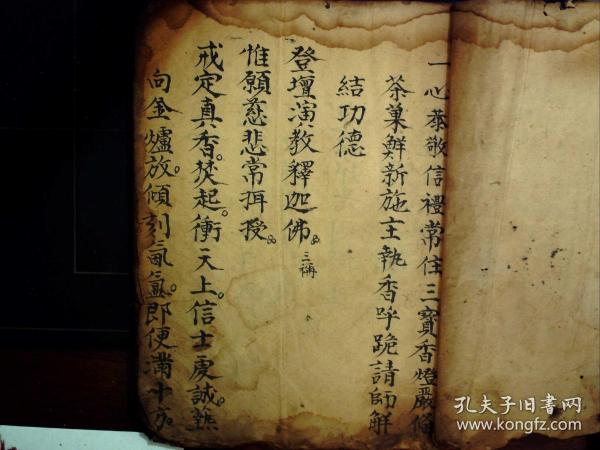 一心恭敬信禮常住三寶香燈嚴俻
茶菓鮮新施主執香呼跪請師觧
結功德
登壇演教釋迦佛。三稱
惟願慈悲常拜授。
戒定真香。焚起。衝天上。信士虔誠。爇
向金爐放。傾刻氤氳。即便滿十方。
孔夫子旧書网
www.kongfz.com